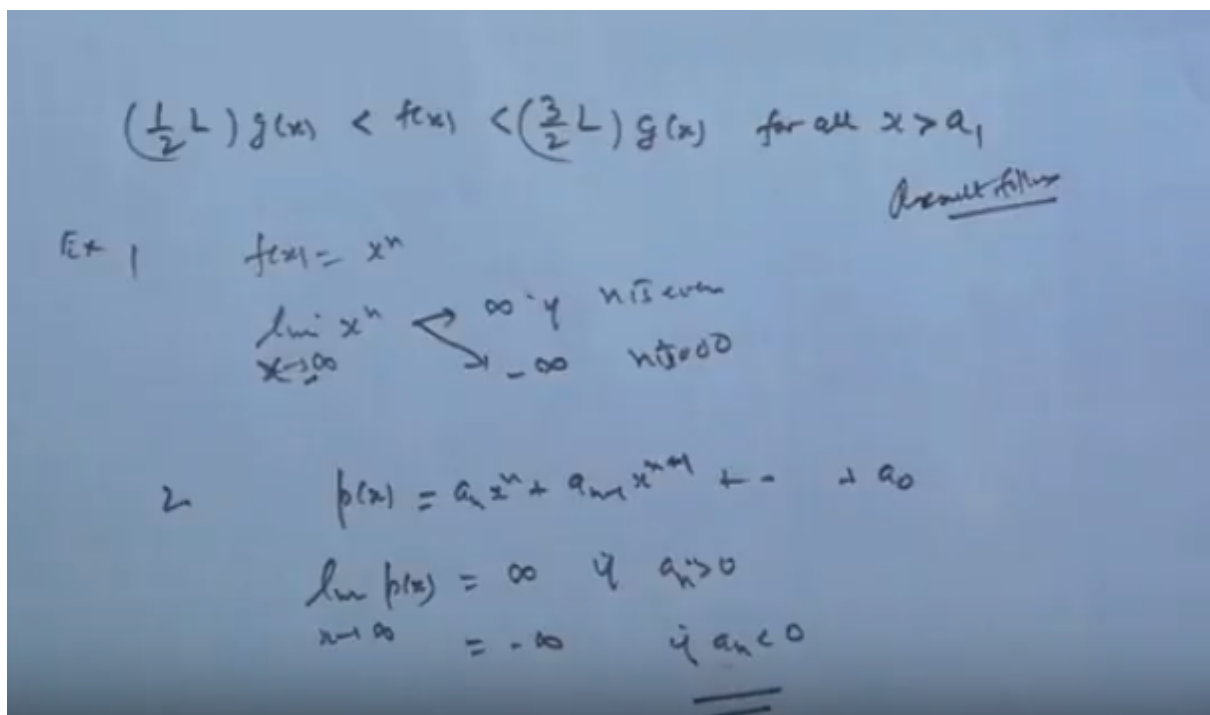 (1/2 L) g(x) < f(x) < (3/2 L) g(x) for all x > a₁
Result follows
Ex 1 f(x) = xⁿ
lim xⁿ → ∞ if n is even
x→∞ → -∞ n is odd
2 p(x) = aₙxⁿ + aₙ₋₁xⁿ⁺¹ + - + a₀
lim p(x) = ∞ if aₙ > 0
x→∞ = -∞ if aₙ < 0